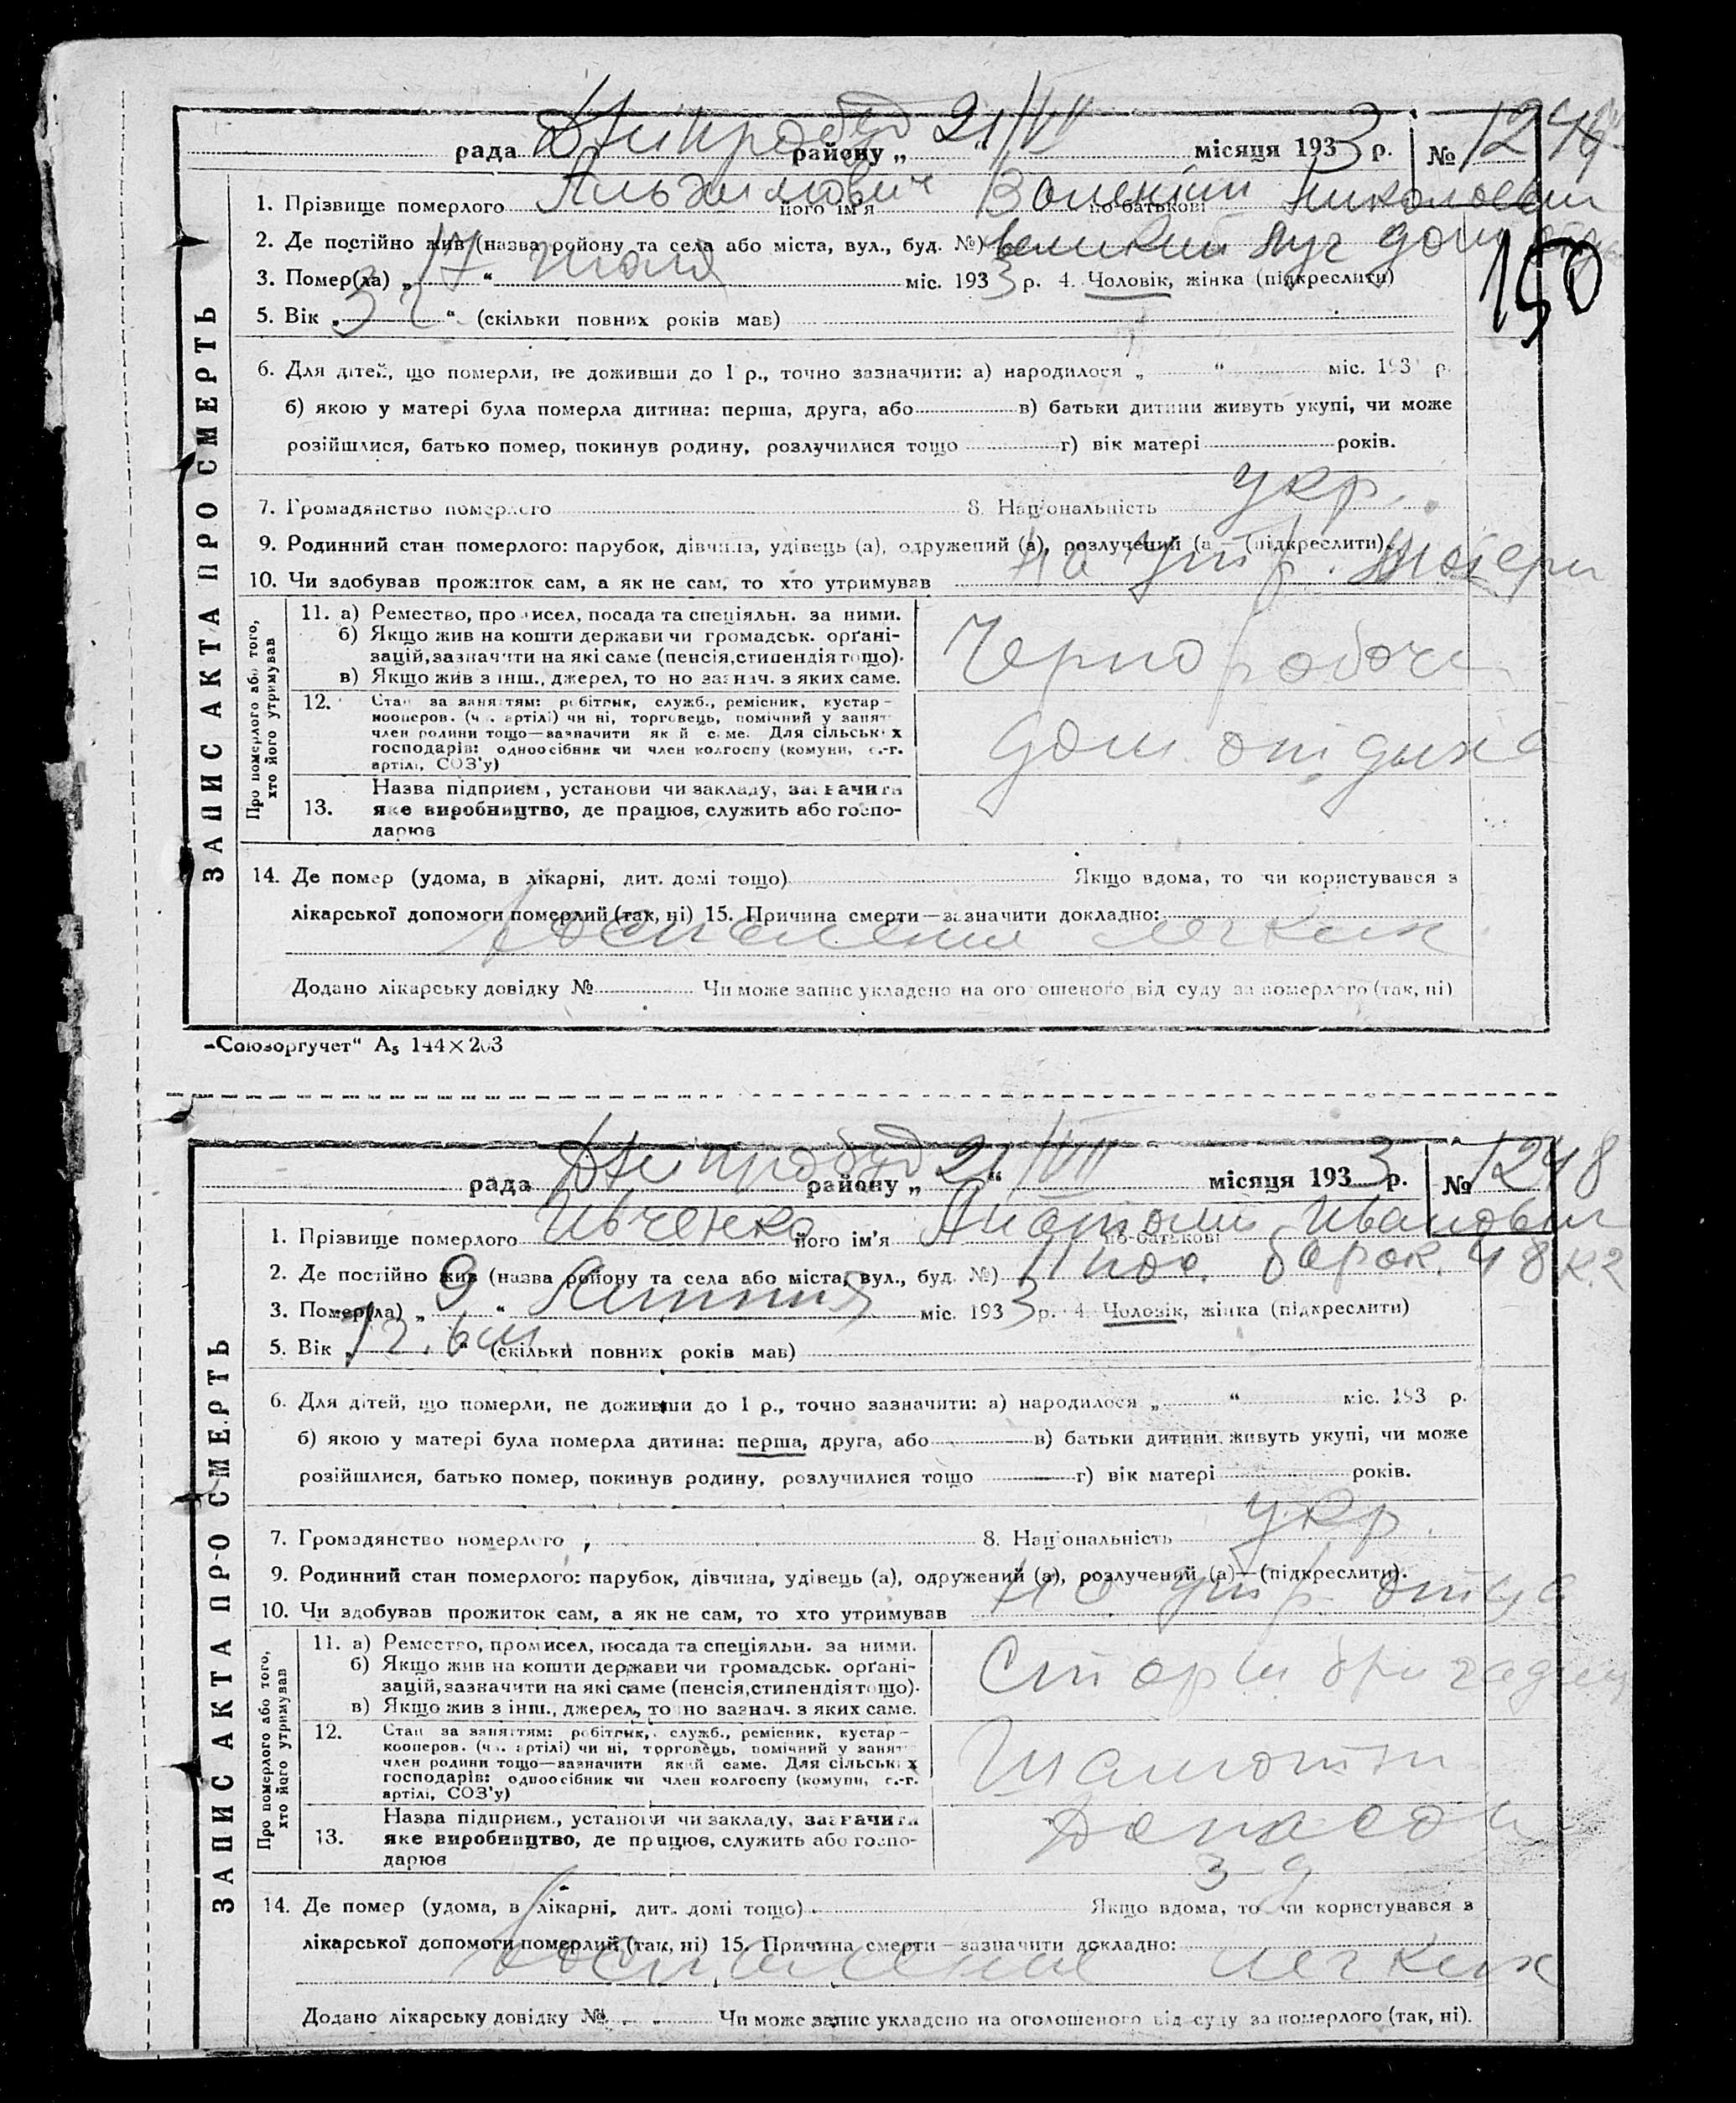 рада Днипробуд району „ 21/VII “ місяця 1933 р. № 124
1. Прізвище померлого його ім'я Валентин по-батькові Николаевич
2. Де постійно жив (назва району та села або міста, вул., буд. №) Великий Луг дом отдыха
150
3. Помер(ла) „ 17 “ мая міс. 1933 р. 4. Чоловік, жінка (підкреслити)
5. Вік „ 3 г “ (скільки повних років мав)
6. Для дітей, що померли, не доживши до 1 р., точно зазначити: а) народилося „ “ міс. 193 р.
б) якою у матері була померла дитина: перша, друга, або в) батьки дитини живуть укупі, чи може
розійшлися, батько помер, покинув родину, розлучилися тощо г) вік матері років.
7. Громадянство померлого 8. Національність укр.
9. Родинний стан померлого: парубок, дівчина, удівець (а), одружений (а), розлучений (а) — (підкреслити).
10. Чи здобував прожиток сам, а як не сам, то хто утримував На ут р. матери
ЗАПИС АКТА ПРО СМЕРТЬ
Про померлого або того, хто його утримував
11. а) Ремество, промисел, посада та спеціяльн. за ними.
б) Якщо жив на кошти держави чи громадськ. орґані-
зацій, зазначити на які саме (пенсія, стипендія тощо).
в) Якщо жив з інш. джерел, то но зазнач. з яких саме.
Чернорабоча
12. Стан за заняттям: робітник, служб., ремісник, кустар –
кооперов. (ч. артілі) чи ні, торговець, помічний у занят
член родини тощо—зазначити який саме. Для сільських
господарів: одноосібник чи член колгоспу (комуни, с.-г.
артілі, СОЗ'у)
дом отдыха
13. Назва підприєм., установи чи закладу, зазначити
яке виробництво, де працює, служить або госпо-
дарює
14. Де помер (удома, в лікарні, дит. домі тощо) Якщо вдома, то чи користувався з
лікарської допомоги померлий (так, ні) 15. Причина смерти—зазначити докладно:
воспаление легких
Додано лікарську довідку № Чи може запис укладено на оголошеного від суду за померлого (так, ні)
„Союзоргучет“ А₅ 144×203
рада Днипробуд району „ 21/VII “ місяця 1933 р. № 1248
1. Прізвище померлого Ивченко його ім'я Анатолий по-батькові Иванович
2. Де постійно жив (назва району та села або міста, вул., буд. №) 11 пос. барок. 48 к. 2
3. Помер(ла) „ 9 “ Липня міс. 1933 р. 4. Чоловік, жінка (підкреслити)
5. Вік „ 1 г. 6 м “ (скільки повних років мав)
6. Для дітей, що померли, не доживши до 1 р., точно зазначити: а) народилося „ “ міс. 193 р.
б) якою у матері була померла дитина: перша, друга, або в) батьки дитини живуть укупі, чи може
розійшлися, батько помер, покинув родину, розлучилися тощо г) вік матері років.
7. Громадянство померлого 8. Національність укр.
9. Родинний стан померлого: парубок, дівчина, удівець (а), одружений (а), розлучений (а)—(підкреслити).
10. Чи здобував прожиток сам, а як не сам, то хто утримував На утр. отца
ЗАПИС АКТА ПРО СМЕРТЬ
Про померлого або того, хто його утримував
11. а) Ремество, промисел, посада та спеціяльн. за ними.
б) Якщо жив на кошти держави чи громадськ. орґані-
зацій, зазначити на які саме (пенсія, стипендія тощо).
в) Якщо жив з інш. джерел, то но зазнач. з яких саме.
Старш бригадир
12. Стан за заняттям: робітник, служб., ремісник, кустар –
кооперов. (ч. артілі) чи ні, торговець, помічний у занят
член родини тощо—зазначити який саме. Для сільських
господарів: одноосібник чи член колгоспу (комуни, с.-г.
артілі, СОЗ'у)
13. Назва підприєм., установи чи закладу, зазначити
яке виробництво, де працює, служить або госпо-
дарює
14. Де помер (удома, в лікарні, дит. домі тощо) Якщо вдома, то чи користувався з
лікарської допомоги померлий (так, ні) 15. Причина смерти—зазначити докладно:
воспаление легких
Додано лікарську довідку № Чи може запис укладено на оголошеного від суду за померлого (так, ні).